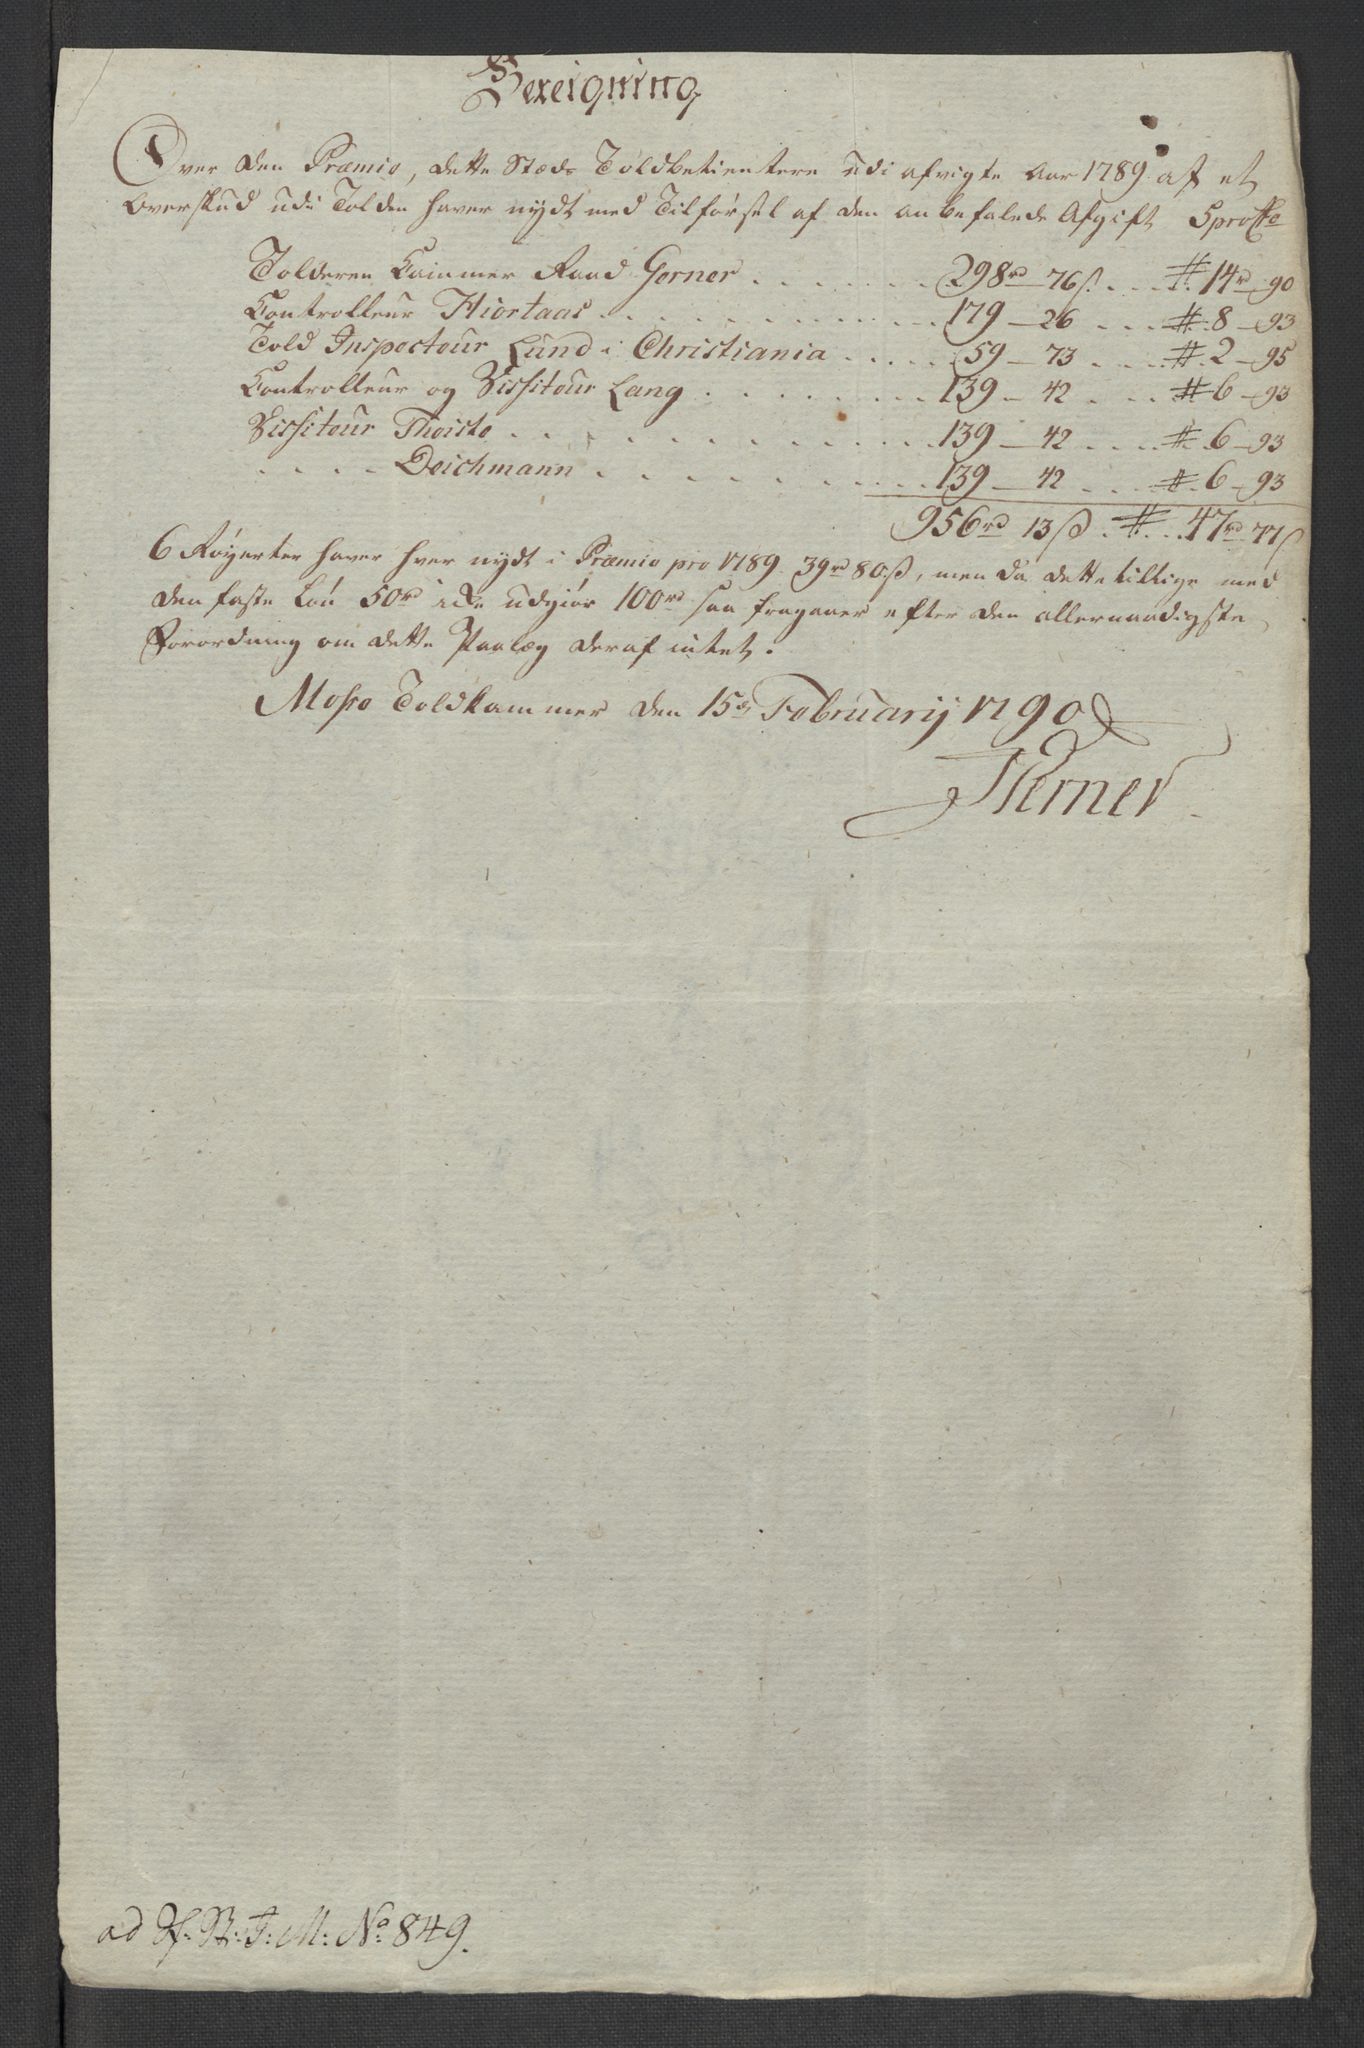 Bereigning
Over den Præmie, dette Stæds Toldbetientere udi afvigte Aar 1789 af et
Overskud udi Tolden haver nydt med Tilførsel af den anbefalede Afgift 5 proCto
Tolderen Cammer Raad Gerner . . . . . . . 298rd 76ß . . . # 14rd 90
Controlleur Hiortaas . . . . . . . . . . . . 179 — 26 . . . # 8 — 93
Told Inspecteur Lund i Christiania . . . . . 59 — 73 . . . . # 2 — 95
Controlleur og Vissiteur Lang . . . . . . . . 139 — 42 . . . # 6 — 93
Vissiteur Theiste . . . . . . . . . . . . . . 139 — 42 . . . . # 6 — 93
. . . . Deichmann . . . . . . . . . . . . 139 — 42 . . . . # 6 — 93
956rd 13ß . # . . 47rd 77ß
6 Røyerter haver hver nydt i Præmie pro 1789 39rd 80ß, men da dette tillige med
den faste Løn 50rd icke udgiør 100rd saa fragaaer efter den allernaadigste
Forordning om dette Paalæg deraf intet.
Mosse Toldkammer den 15de Februarij 1790
Gerner
ad N. No 849.